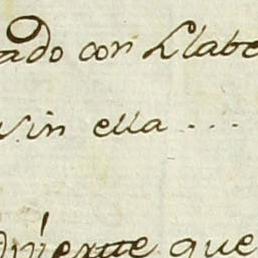 ado con Llabe
sin ella ...
dvierte que